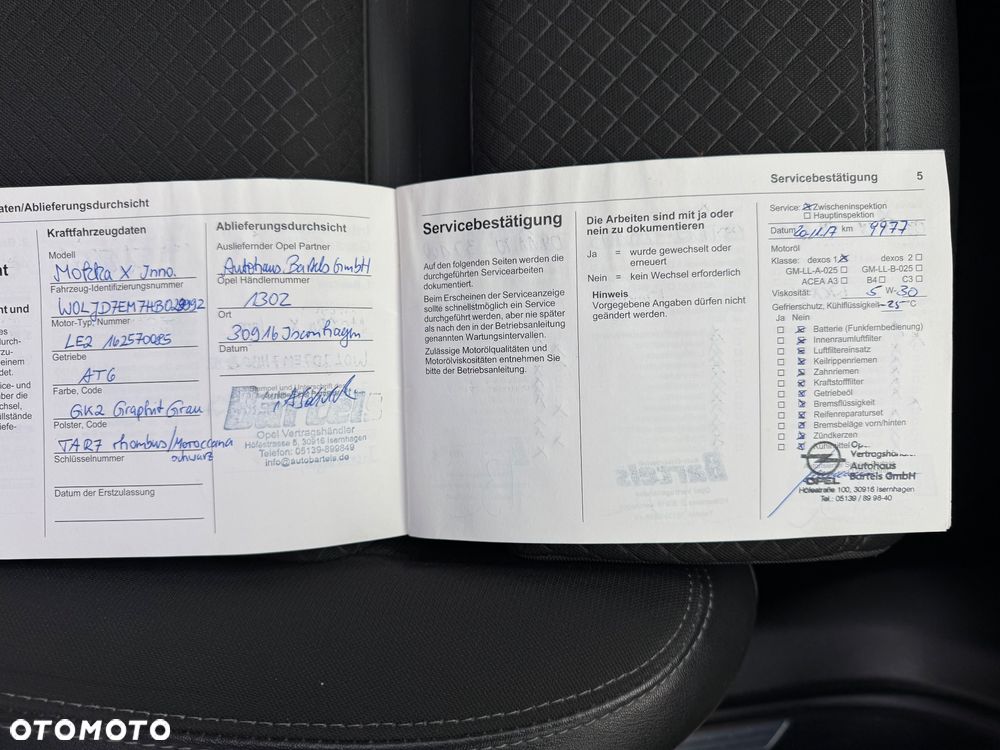 aten/Ablieferungsdurchsicht
Kraftfahrzeugdaten
Modell
Mokka X Inno.
Fahrzeug-Identifizierungsnummer
Motor-Typ, Nummer
LE2 162570085
Getriebe
AT6
Farbe, Code
GK2 Graphit Grau
Polster, Code
TAR7 rhombus/Moroccana
schwarz
Schlüsselnummer
Datum der Erstzulassung
Ablieferungsdurchsicht
Ausliefernder Opel Partner
Autohaus Bartels GmbH
Opel Händlernummer
1302
Ort
30916 Isernhagen
Datum
Stempel und Unterschrift des
Opel Vertragshändler
Höfestrasse 5, 30916 Isernhagen
Telefon: 05139-899849
info@autobartels.de
Servicebestätigung
Auf den folgenden Seiten werden die
durchgeführten Servicearbeiten
dokumentiert.
Beim Erscheinen der Serviceanzeige
sollte schnellstmöglich ein Service
durchgeführt werden, aber nie später
als nach den in der Betriebsanleitung
genannten Wartungsintervallen.
Zulässige Motorölqualitäten und
Motorölviskositäten entnehmen Sie
bitte der Betriebsanleitung.
Die Arbeiten sind mit ja oder
nein zu dokumentieren
Ja = wurde gewechselt oder
erneuert
Nein = kein Wechsel erforderlich
Hinweis
Vorgegebene Angaben dürfen nicht
geändert werden.
Servicebestätigung 5
Service: Zwischeninspektion
Hauptinspektion
Datum 20.11.17 km 9977
Motoröl
Klasse: dexos 1 dexos 2
GM-LL-A-025 GM-LL-B-025
ACEA A3 B4 C3
Viskosität: 5 W-30
Gefrierschutz, Kühlflüssigkeit -25 °C
Ja Nein
Batterie (Funkfernbedienung)
Innenraumluftfilter
Luftfiltereinsatz
Keilrippenriemen
Zahnriemen
Kraftstofffilter
Getriebeöl
Bremsflüssigkeit
Reifenreparaturset
Bremsbeläge vorn/hinten
Zündkerzen
Kühlmittel
OPEL
Autohaus
Bartels GmbH
Höfestraße 100, 30916 Isernhagen
Tel.: 05139 / 89 98-40
OTOMOTO